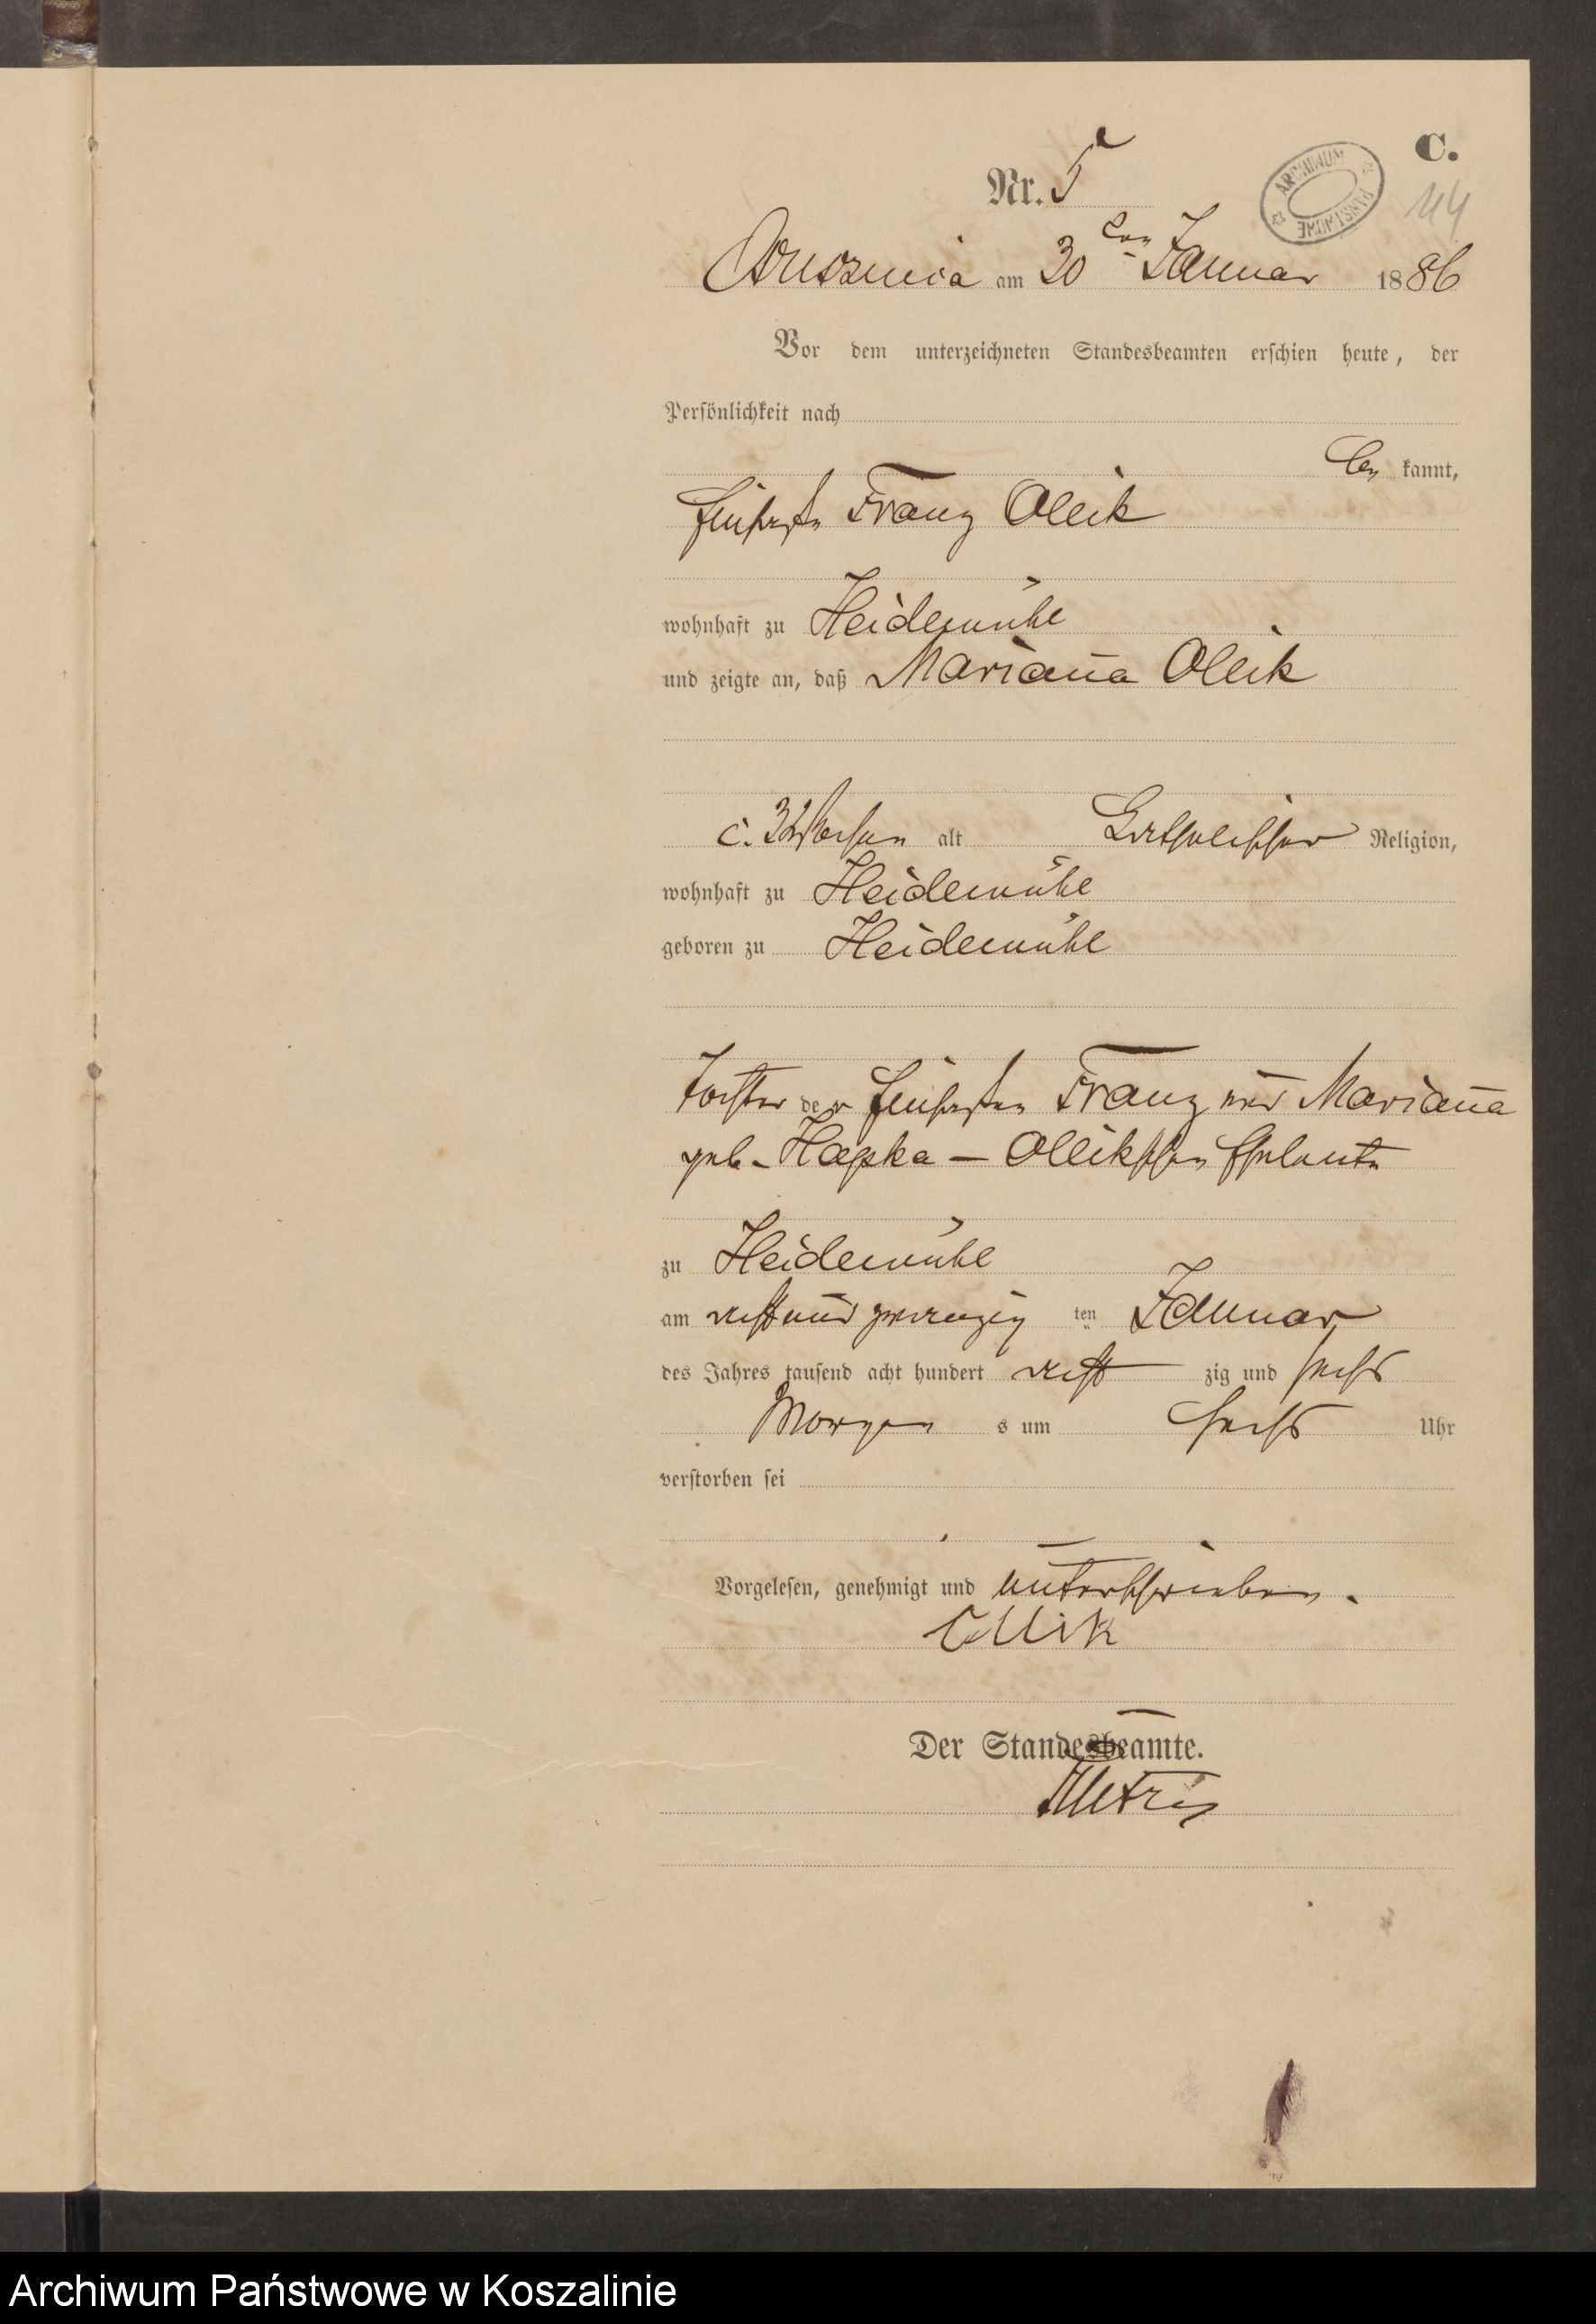 C.
Nr. 5
ARCHIWUM PAŃSTWOWE
114
am 30 ten Januar 1886
Vor dem unterzeichneten Standesbeamten erschien heute, der
Persönlichkeit nach
be kannt,
Franz Olleik
wohnhaft zu Heidemühl
und zeigte an, daß Marianna Olleik
c. 3½ Wochen alt Katholischer Religion,
wohnhaft zu Heidemühl
geboren zu Heidemühl
Tochter der Franz und Marianna
geb. Hapka – Olleikschen Eheleute
zu Heidemühl
am acht und zwanzig ten Januar
des Jahres tausend acht hundert acht zig und sechs
Morgen s um sechs Uhr
verstorben sei
Vorgelesen, genehmigt und unterschrieben.
Ollik
Der Standesbeamte.
Archiwum Państwowe w Koszalinie